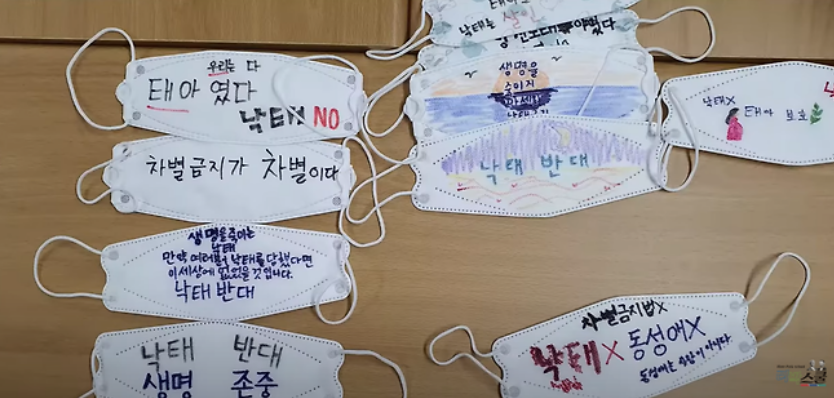 우리는 다
태아 였다
낙태 NO
차별금지가 차별이다
생명을죽이는
낙태
만약 여러분도 낙태를 당했다면
이세상에 없었을 것입니다.
낙태 반대
낙태 반대
생명 존중
낙태는
생명을
죽이지
마세요
낙태 반대
낙태X
태아 보호
차별금지법X
낙태X 동성애X